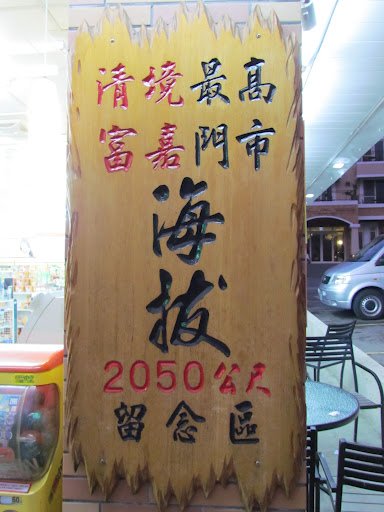 清境最高
富嘉門市
海拔
2050公尺
留念區